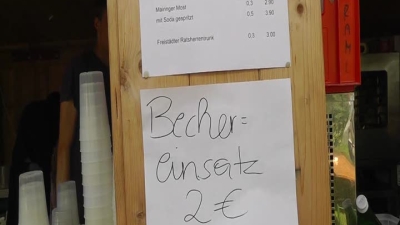 Mairinger Most 0.3 2.90
mit Soda gespritzt 0.5 3.50
Freistädter Ratsherrentrunk 0.5 3.00
Becher=
einsatz
2 €